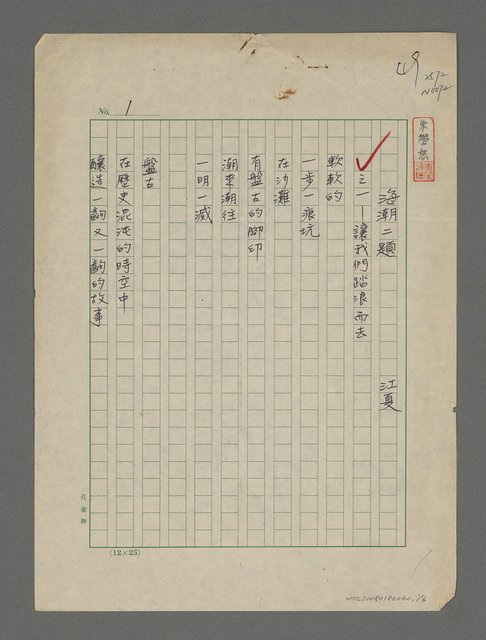 2572
N0072
No. 1
朱學恕
海潮二題
江夏
之一—讓我們踏浪而去
軟軟的
一步一痕坑
在沙灘
有盤古的腳印
潮來潮往
一明一滅
盤古
在歷史混沌的時空中
釀造一齣又一齣的故事
孔雀牌
(12×25)
NMTL20080180060, 1/6